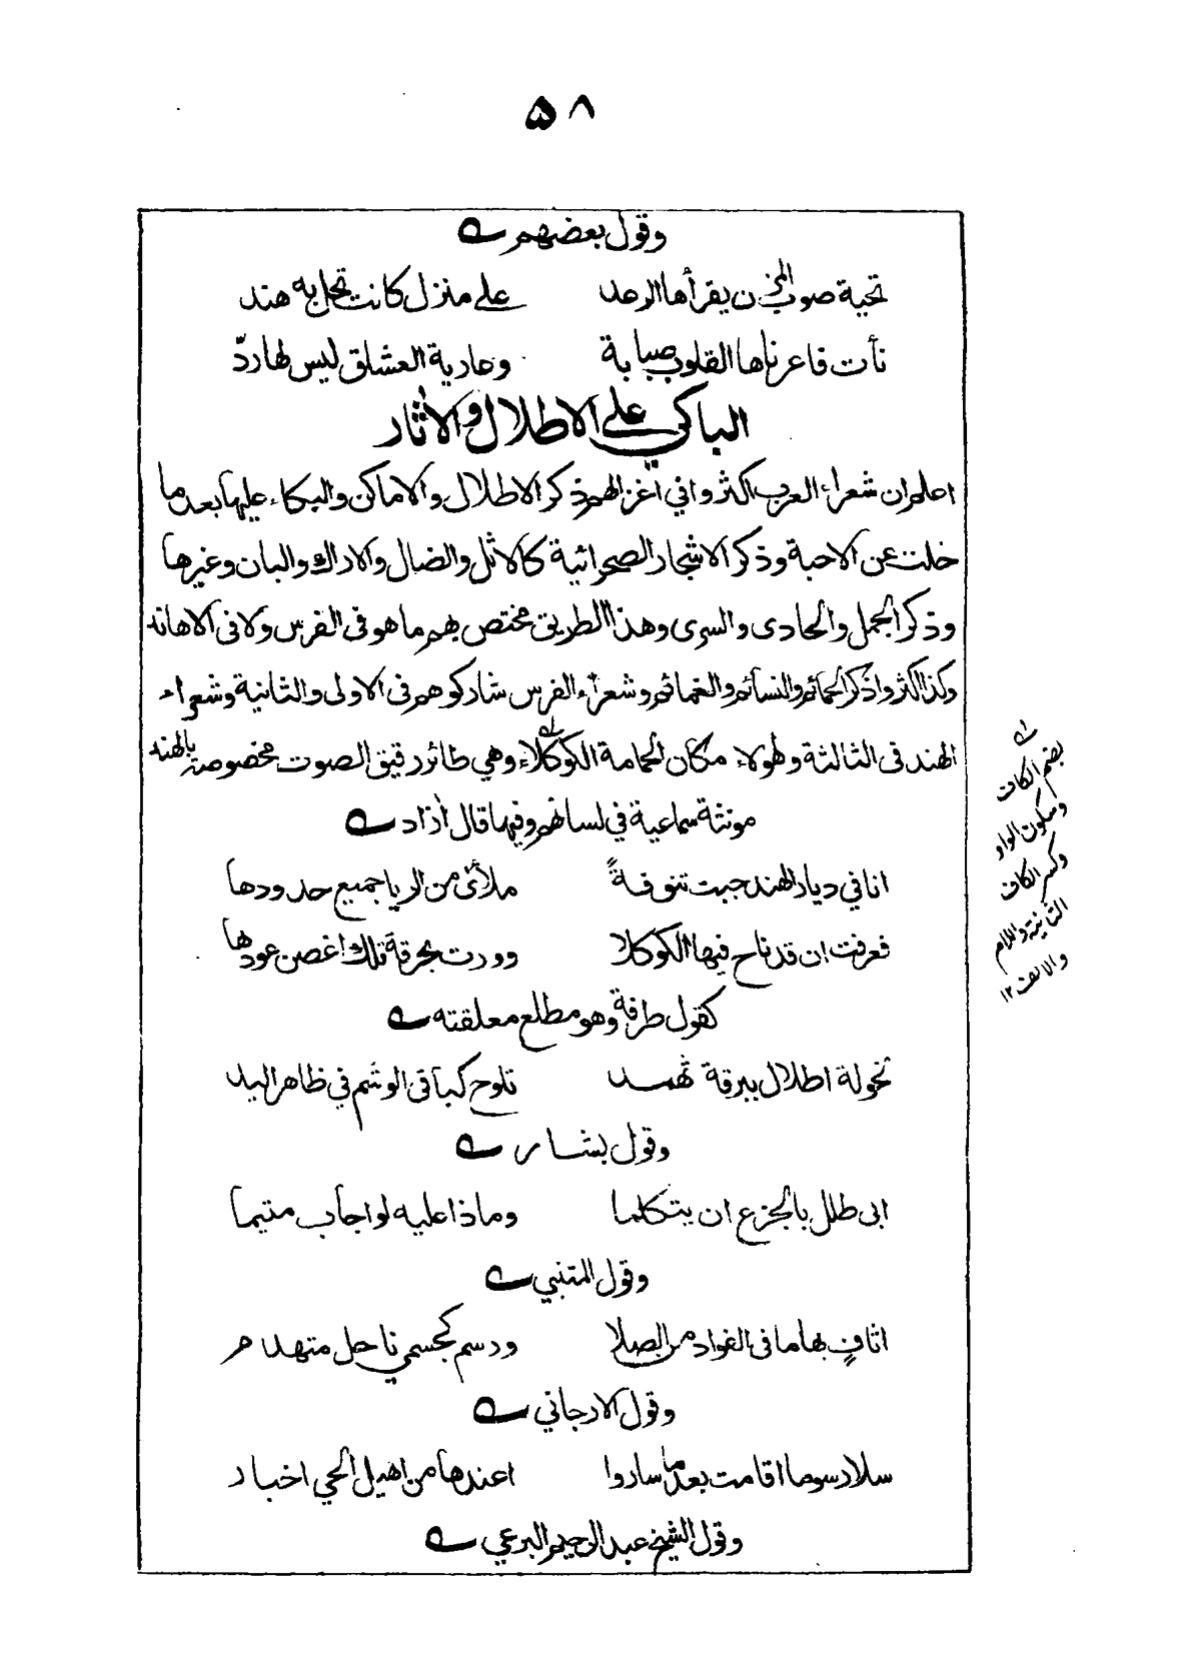 ۵۸
وقول بعضهم
تحية صوب المزن يقرأها الرعد على منزل كانت تحل به هند
نأت فاعرناها القلوب صبابة وعارية العشاق ليس لها ردّ
الباكي على الاطلال والاٰثار
اعلم ان شعراء العرب اكثروا في أغزالهم ذكر الاطلال والاماكن والبكاء عليها بعد ما
خلت عن الاحبة وذكر الاشجار الصحرائية كالاثل والضال والاراك والبان وغيرها
وذكر الجمل والحادى والسرى وهذا الطريق مختص بهم ما هو فى الفرس ولا فى الاهاند
وكذا اكثروا ذكر الحمائم والنسائم والغمائم وشعراء الفرس شاركوهم فى الاولى والثانية وشعراء
الهند فى الثالثة ولهولاء مكان الحمامة الكوكلاء وهي طائر رقيق الصوت مخصوصة بالهند
مونثة سماعية في لسانهم وفيها قال اٰزاد
انا في ديار الهند جبت تنوفةً ملأى من الريا جميع حدودها
فعرفت ان قد ناح فيها الكوكلا وورت بحرقة تلك اغصن عودها
كقول طرفة وهو مطلع معلقته
لخولة اطلال ببرقة ثهمد تلوح كباقى الوشم في ظاهر اليد
وقول بشار
ابى طلل بالجزع ان يتكلما وماذا عليه لو اجاب متيما
وقول المتنبي
اثافٍ بها ما فى الفواد من الصلا ورسم كجسمي ناحل متهدم
وقول الارجاني
سلا رسوما اقامت بعد ما ساروا اعندها من اهيل الحي اخبار
وقول الشيخ عبد الرحيم البرعي
بضم الكاف
وسكون الواو
وكسر الكاف
الثانية واللام
والالف ١٢